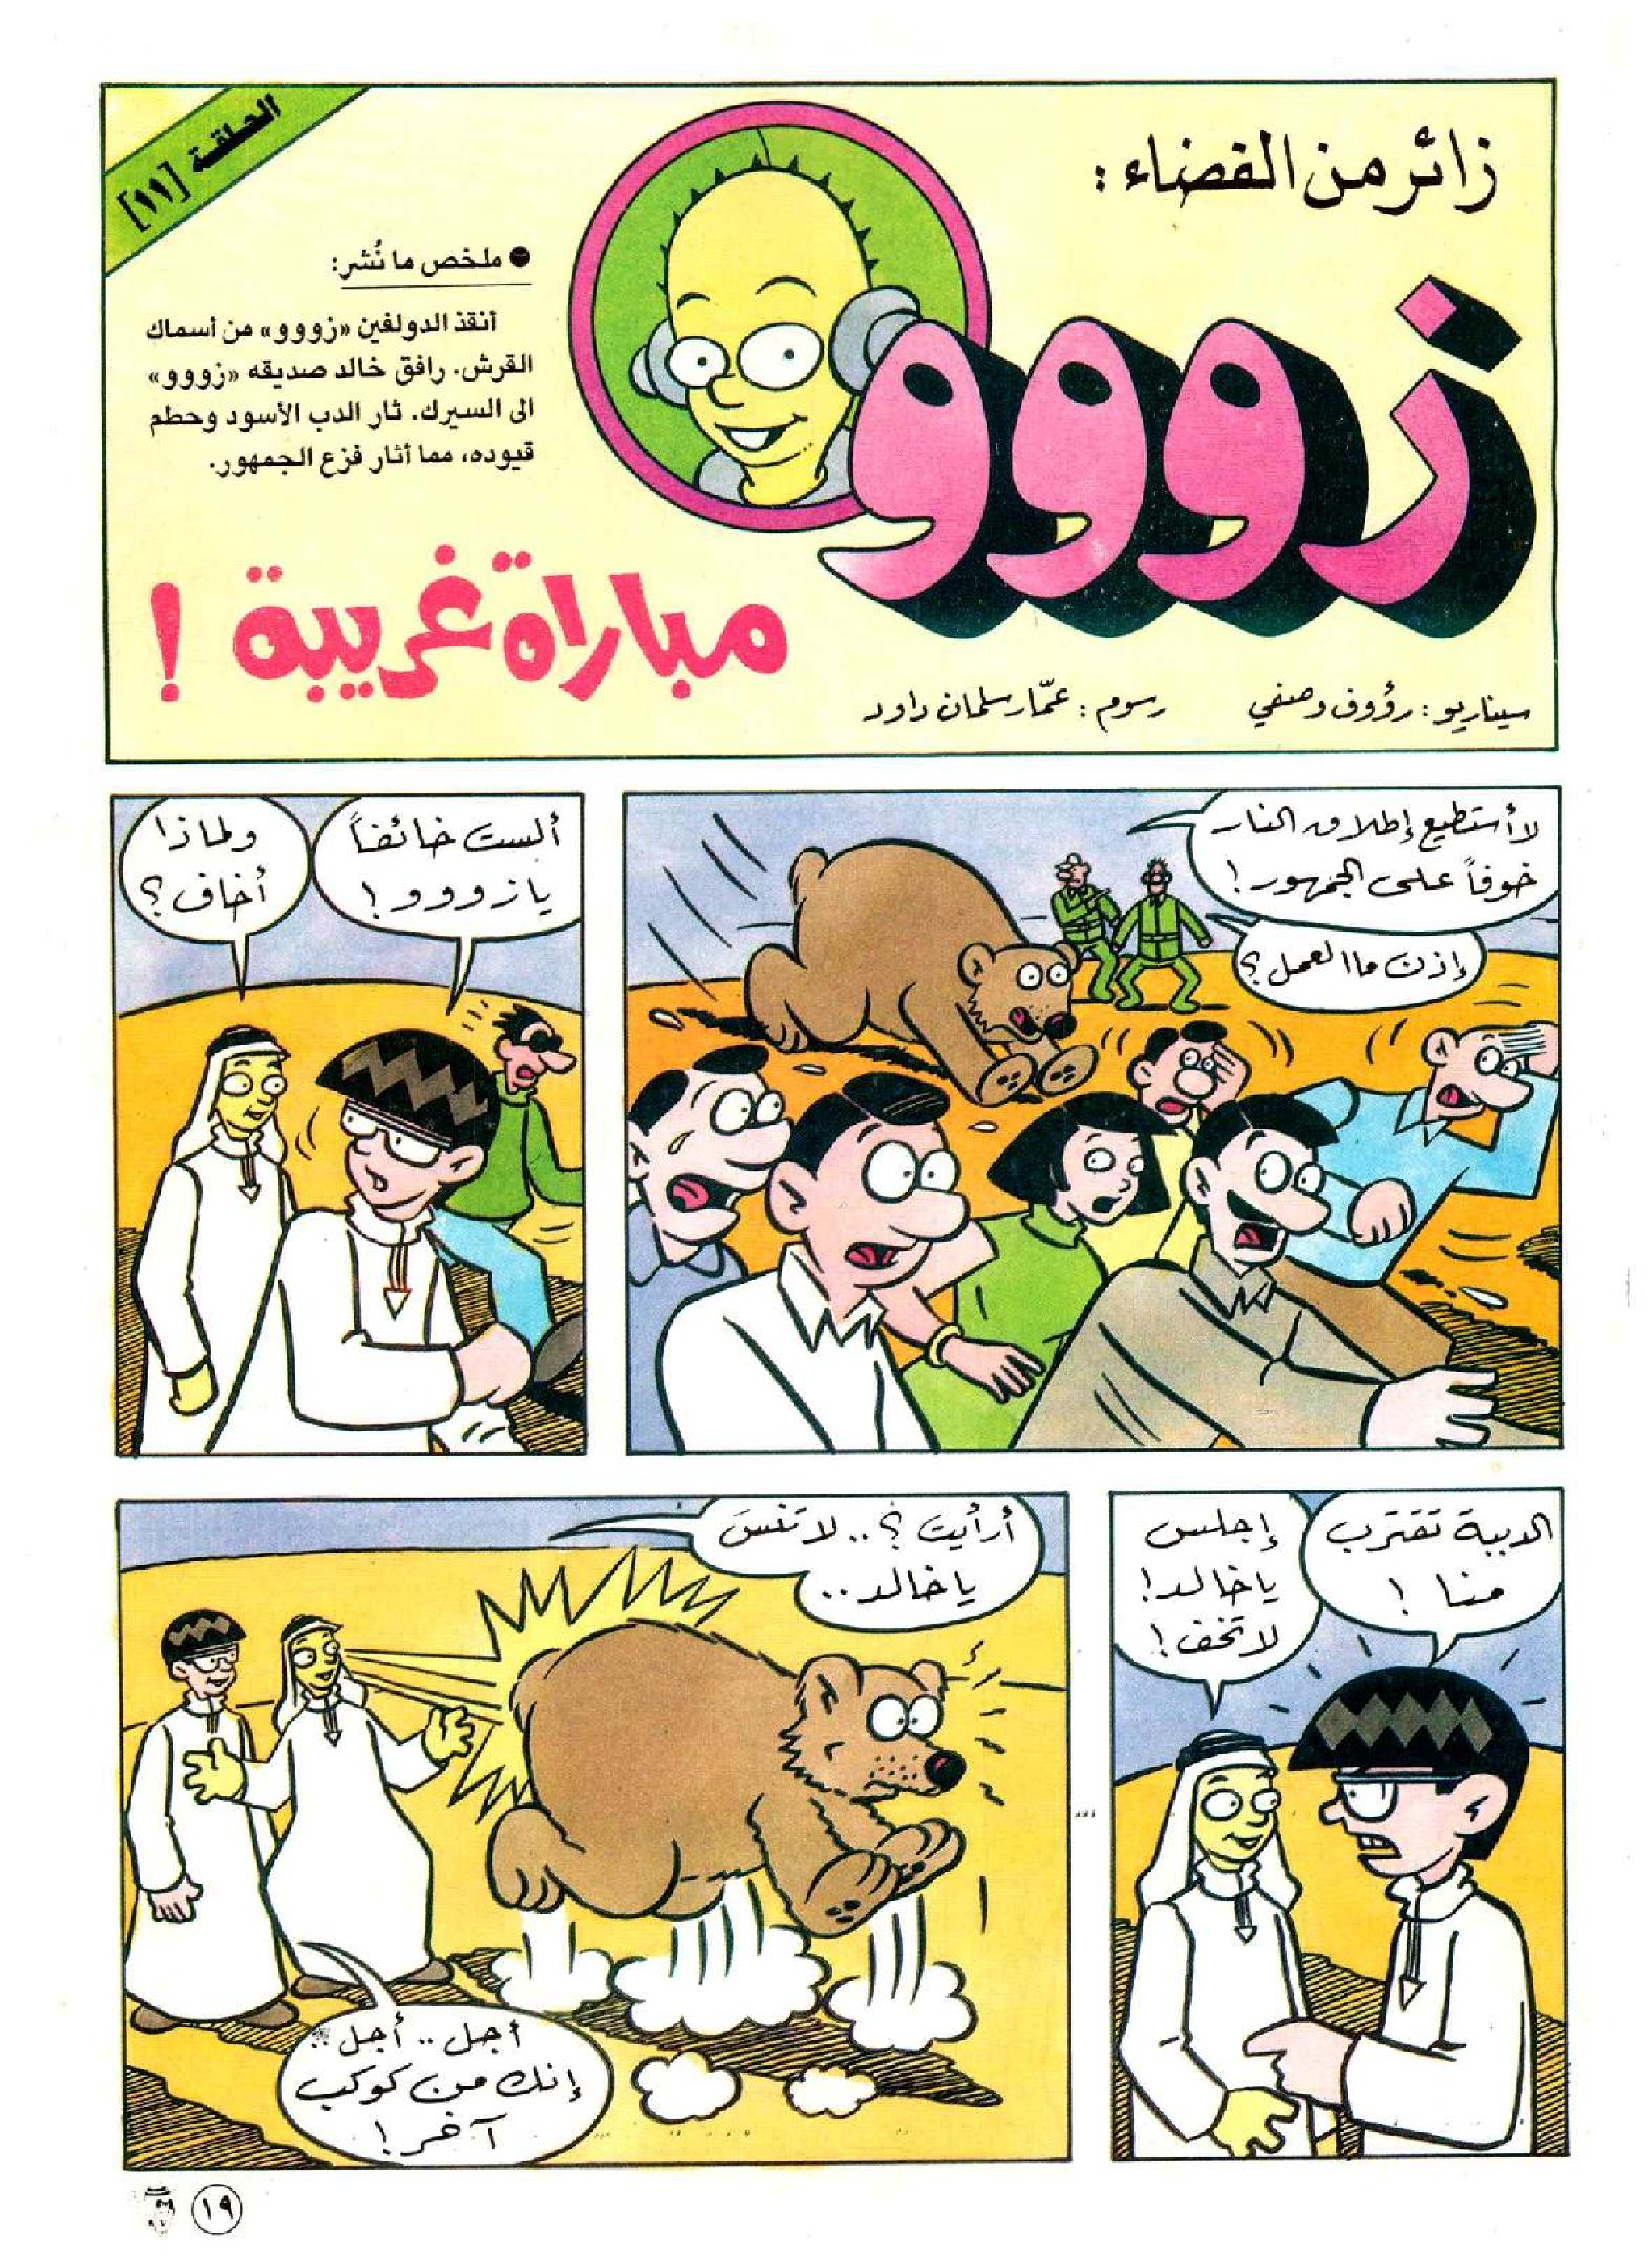 زائر من الفضاء:
زووو
الحلقة [١١]
● ملخص ما نُشر:
أنقذ الدولفين «زووو» من أسماك
القرش. رافق خالد صديقه «زووو»
الى السيرك. ثار الدب الأسود وحطم
قيوده، مما أثار فزع الجمهور.
مباراة غريبة !
سيناريو : رؤوف وصفي
رسوم : عمّار سلمان داود
لا أستطيع إطلاق النار
خوفاً على الجمهور !
إذن ما العمل ؟
ألست خائفاً
يا زووو !
ولماذا
أخاف ؟
الدببة تقترب
منا !
إجلس
يا خالد !
لا تخف !
أرأيت ؟ .. لا تنسَ
يا خالد ..
أجل .. أجل ..
إنك من كوكب
آخر !
١٩